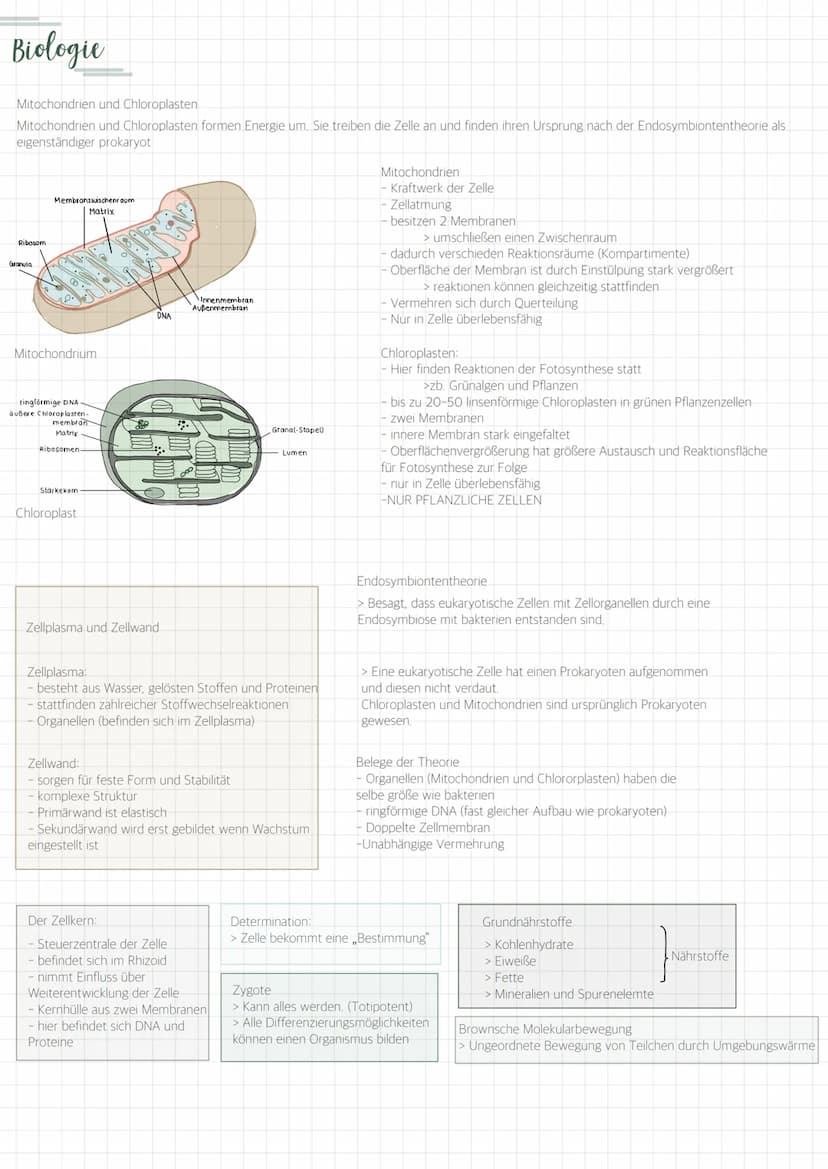 Biologie
Mitochondrien und Chloroplasten
Mitochondrien und Chloroplasten formen Energie um. Sie treiben die Zelle an und finden ihren Ursprung nach der Endosymbiontentheorie als
eigenständiger prokaryot
Membranzwischenraum
Matrix
Ribosom
Granula
Innenmembran
Außenmembran
DNA
Mitochondrium
Mitochondrien
- Kraftwerk der Zelle
- Zellatmung
- besitzen 2 Membranen
> umschließen einen Zwischenraum
- dadurch verschieden Reaktionsräume (Kompartimente)
- Oberfläche der Membran ist durch Einstülpung stark vergrößert
> reaktionen können gleichzeitig stattfinden
- Vermehren sich durch Querteilung
- Nur in Zelle überlebensfähig
ringförmige DNA
äußere Chloroplasten-
membran
Matrix
Ribosomen
Stärkekorn
Grana(-Stapel)
Lumen
Chloroplast
Chloroplasten:
- Hier finden Reaktionen der Fotosynthese statt
>zb. Grünalgen und Pflanzen
- bis zu 20-50 linsenförmige Chloroplasten in grünen Pflanzenzellen
- zwei Membranen
- innere Membran stark eingefaltet
- Oberflächenvergrößerung hat größere Austausch und Reaktionsfläche
für Fotosynthese zur Folge
- nur in Zelle überlebensfähig
-NUR PFLANZLICHE ZELLEN
Zellplasma und Zellwand
Zellplasma:
- besteht aus Wasser, gelösten Stoffen und Proteinen
- stattfinden zahlreicher Stoffwechselreaktionen
- Organellen (befinden sich im Zellplasma)
Zellwand:
- sorgen für feste Form und Stabilität
- komplexe Struktur
- Primärwand ist elastisch
- Sekundärwand wird erst gebildet wenn Wachstum
eingestellt ist
Endosymbiontentheorie
> Besagt, dass eukaryotische Zellen mit Zellorganellen durch eine
Endosymbiose mit bakterien entstanden sind.
> Eine eukaryotische Zelle hat einen Prokaryoten aufgenommen
und diesen nicht verdaut.
Chloroplasten und Mitochondrien sind ursprünglich Prokaryoten
gewesen.
Belege der Theorie
- Organellen (Mitochondrien und Chlororplasten) haben die
selbe größe wie bakterien
- ringförmige DNA (fast gleicher Aufbau wie prokaryoten)
- Doppelte Zellmembran
-Unabhängige Vermehrung
Der Zellkern:
- Steuerzentrale der Zelle
- befindet sich im Rhizoid
- nimmt Einfluss über
Weiterentwicklung der Zelle
- Kernhülle aus zwei Membranen
- hier befindet sich DNA und
Proteine
Determination:
> Zelle bekommt eine „Bestimmung"
Zygote
> Kann alles werden. (Totipotent)
> Alle Differenzierungsmöglichkeiten
können einen Organismus bilden
Grundnährstoffe
> Kohlenhydrate
> Eiweiße
> Fette
> Mineralien und Spurenelemte
Nährstoffe
Brownsche Molekularbewegung
> Ungeordnete Bewegung von Teilchen durch Umgebungswärme